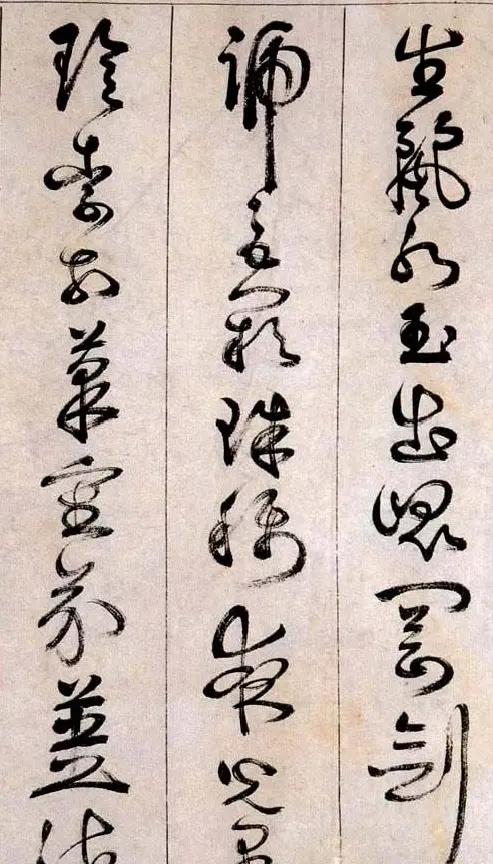 生麗水玉出崐岡劍
號巨闕珠稱夜光果
珍李柰菜重芥薑海